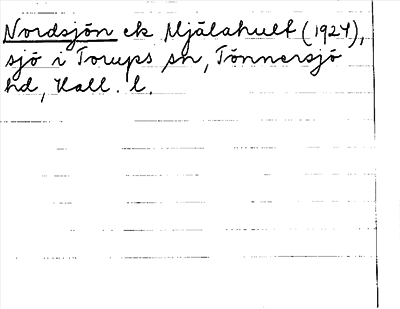 Nordsjön ek Mjälahult (1924),
sjö i Torups sn, Tönnersjö
hd, Hall. l.